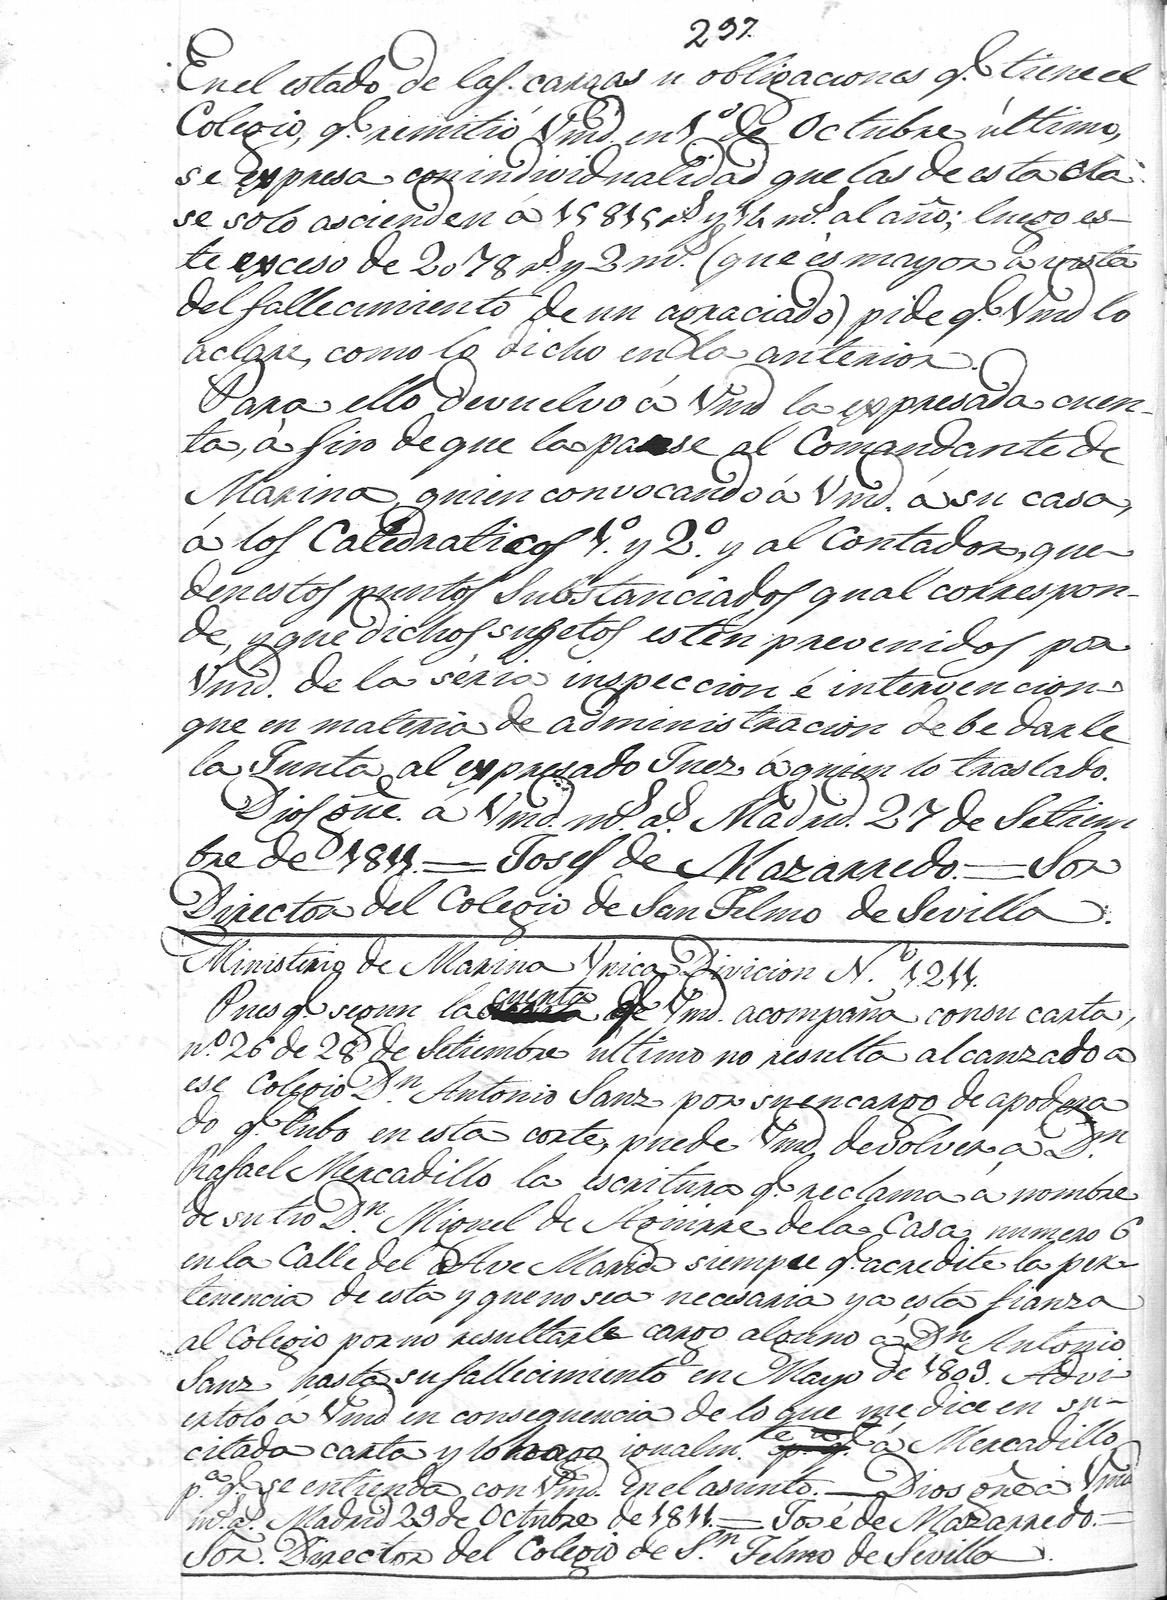 237.
En el estado de las cargas u obligaciones q.e tiene el
Colegio, q.e remitió Vmd. en 1.º de Octubre último,
se expresa con individualidad que las de esta cla-
se solo ascienden á 15815 r.s y 14 m.s al año; luego es-
te exceso de 2078 r.s y 2 m.s (que és mayor á vista
del fallecimiento de un agraciado) pide q.e Vmd lo
aclare, como lo dicho en la anterior.
Para ello devuelvo á Vmd la expresada cuen-
ta, á fin de que la pase al Comandante de
Marina, quien convocando á Vmd. á su casa,
á los Catedraticos 1.º y 2.º y al Contador, que-
den estos puntos substanciados qual correspon-
de, y que dichos sugetos estén prevenidos por
Vmd. de la séria inspeccion é intervencion
que en materia de administracion debe darle
la Junta al expresado Juez á quien lo traslado.
Dios gũe. á Vmd. m.s a.s Madrid 27 de Setiem
bre de 1811. = Josef de Mazarredo. = Sor
Director del Colegio de San Telmo de Sevilla.
Ministerio de Marina Unica Divicion N.º 1211.
Pues q.e segun la cuenta q.e Vmd. acompaña con su carta,
n.º 26 de 28 de Setiembre ultimo no resulta alcanzado a
ese Colegio D.n Antonio Sanz por su encargo de apodera
do q.e tubo en esta corte, puede Vmd. devolver á D.n
Rafael Mercadillo la escritura q.e reclama á nombre
de su tio D.n Miguel de Aguirre de la Casa numero 6
en la Calle del Ave Maria siempre q.e acredite la per-
tenencia de esta y que no sea necesaria ya esta fianza
al Colegio por no resultarle cargo alguno á D.n Antonio
Sanz hasta su fallecimiento en Mayo de 1809. Advi
ertolo á Vmd en consequencia de lo que me dice en su-
citada carta y lo hago igualm.te á Mercadillo
p.a q.e se entienda con Vmd. en el asunto. — Dios gũe á Vmd
m.s a.s Madrid 29 de Octubre de 1811. = José de Mazarredo. =
Sor. Director del Colegio de S.n Telmo de Sevilla.